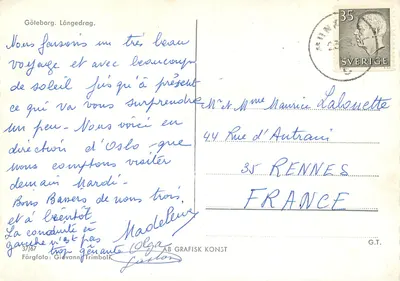 Göteborg. Långedrag.
Nous faisons un très beau
voyage et avec beaucoup
de soleil jusqu'à présent
ce qui va vous surprendre
un peu - Nous voici en
direction d'Oslo que
nous comptons visiter
demain Mardi.
Bons Baisers de nous trois
et à bientôt
Madeleine
La conduite à
gauche n'est pas
trop gênante
Olga
Gaston
35
SVERIGE
Mr et Mme Maurice Lalouette
44 Rue d'Antrain
35 RENNES
FRANCE
37/67
AB GRAFISK KONST
G.T.
Färgfoto: Giovanni Trimboli